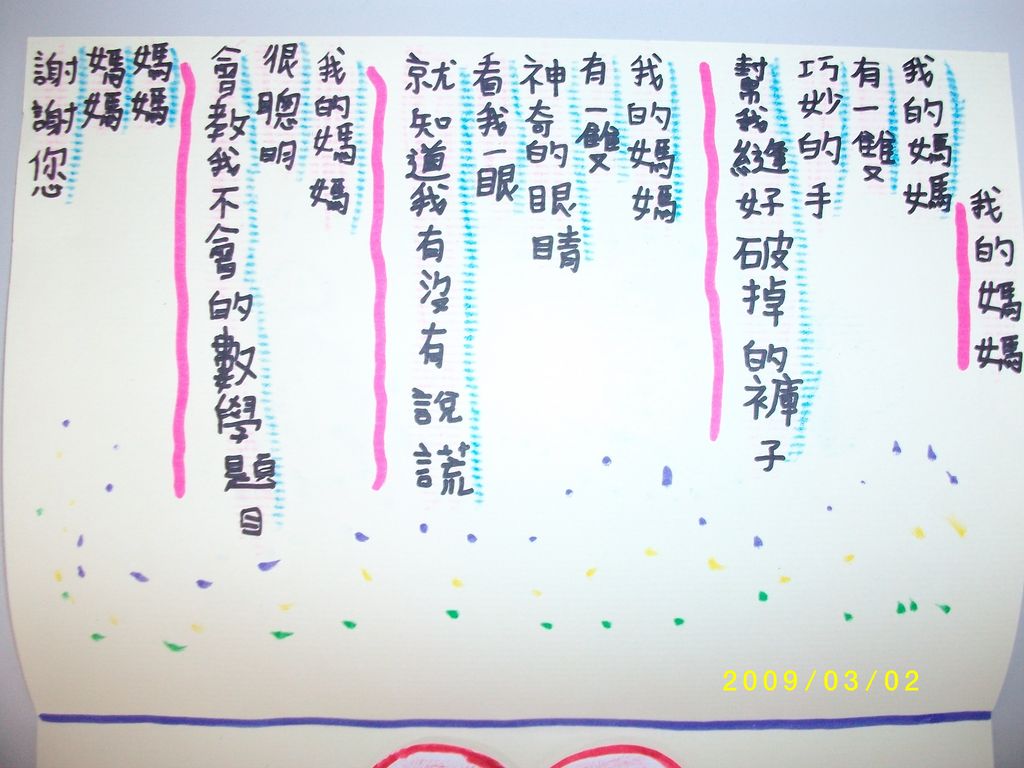 我的媽媽
我的媽媽
有一雙
巧妙的手
幫我縫好破掉的褲子
我的媽媽
有一雙
神奇的眼睛
看我一眼
就知道我有沒有說謊
我的媽媽
很聰明
會教我不會的數學題目
媽媽
媽媽
謝謝您
2009/03/02